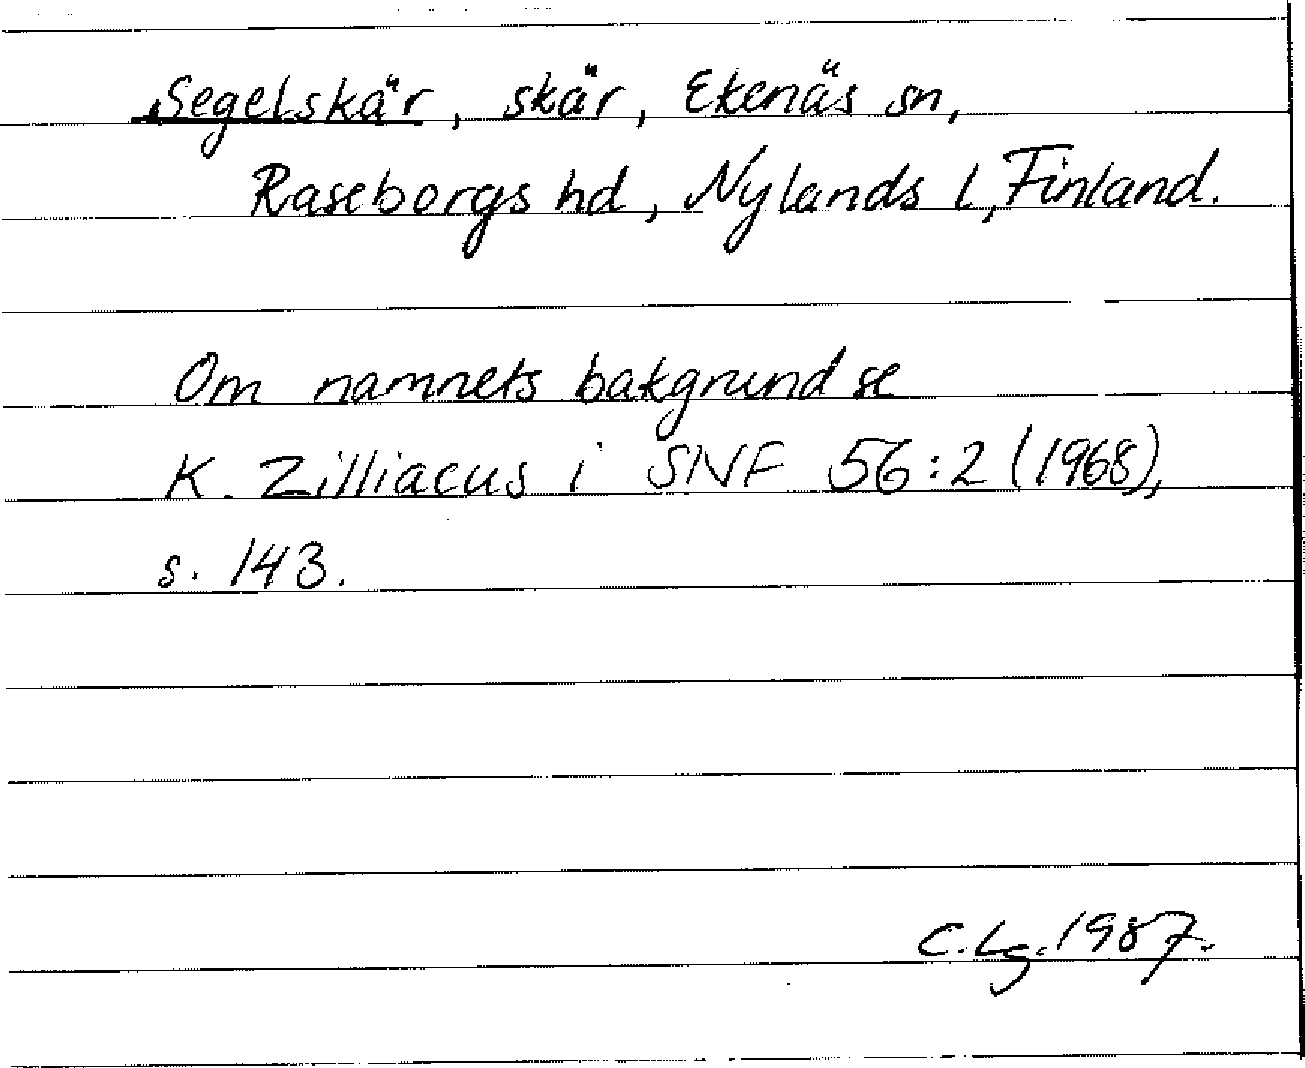 Segelskär, skär, Ekenäs sn,
Raseborgs hd, Nylands l, Finland.
Om namnets bakgrund se
K. Zilliacus i SNF 56:2 (1968),
s. 143.
C.Lg. 1987.